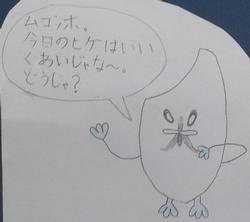 ムゴッホ。
今日のヒゲはいい
ぐあいじゃな〜。
どうじゃ?